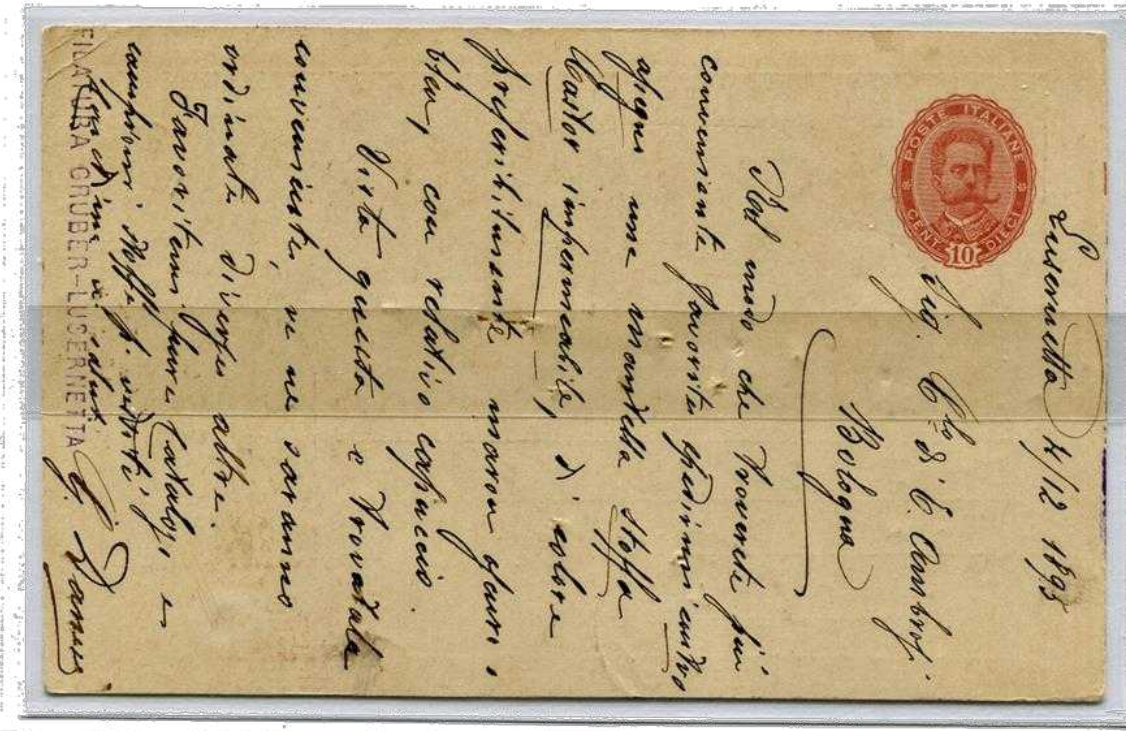 POSTE ITALIANE
CENT. 10 DIECI
Lusernetta 4/12 1895
Sig. C. di E.
Bologna
Nel modo che troverete più
conveniente favorite spedirmi contro
una mantella stoffa
Castor impermeabile, di colore
preferibilmente marron o
bleu, con relativo capuccio.
Vista questa e trovatala
conveniente, ve ne saranno
ordinate diverse altre.
Favoritemi pure Catalogi e
campioni stoffe p. vestiti
FILATURA GRUBER-LUSERNETTA